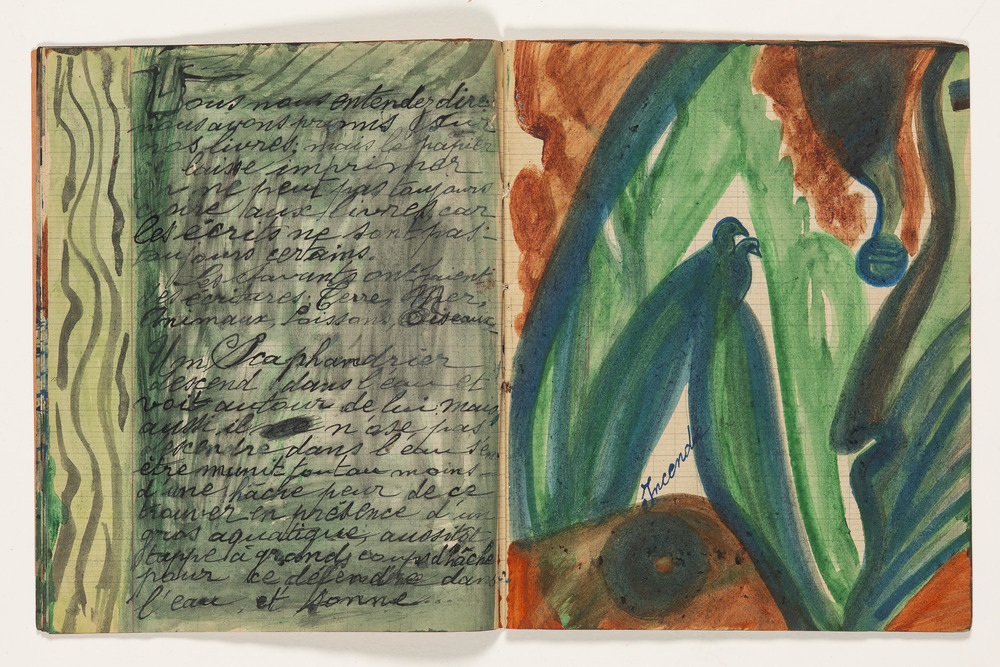 Vous nous entendez dire
nous avons promis sur
nos livres; mais le papier
laisse imprimer
ne peut pas toujours
aux livres, car
les écris ne sont pas
toujours certains.
Les savants ont
des écritures; Terre, Mer,
Animaux, Poissons, Oiseaux
Un Scaphandrier
descend dans l'eau et
voit autour de lui, mais
aussi il n'ose pas
descendre dans l'eau s'en
être munit tout au moins
d'une hâche peur de ce
trouver en présence d'un
gros aquatique, aussitôt
frappe à grands coups d'hâche
pour ce défendre dans
l'eau, et sonne...
Incendie